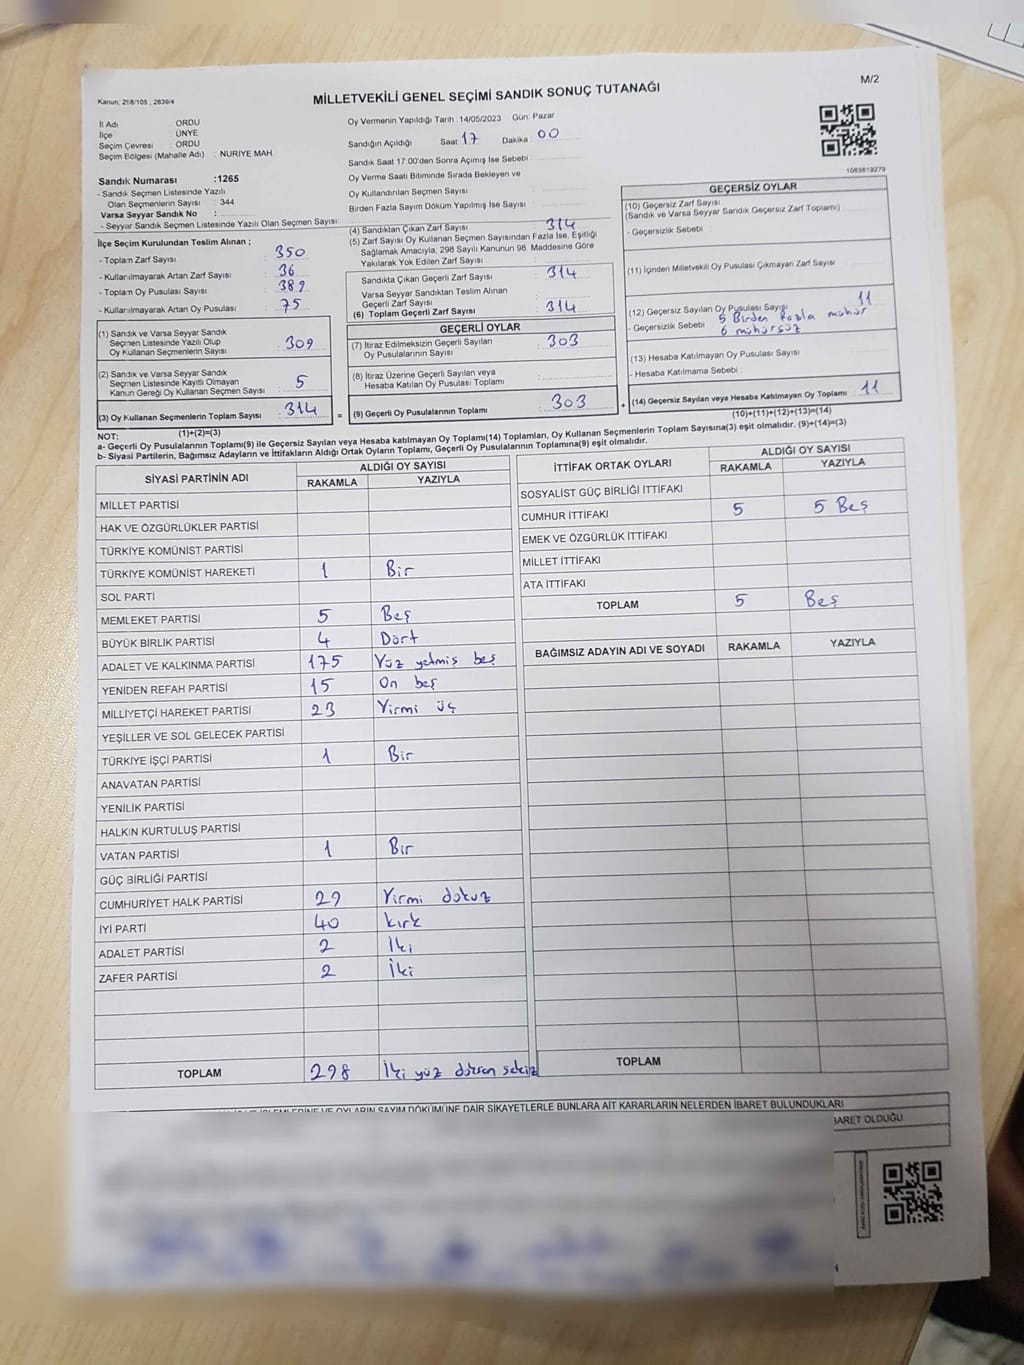 M/2
Kanun: 298/105 , 2839/4
MİLLETVEKİLİ GENEL SEÇİMİ SANDIK SONUÇ TUTANAĞI
İl Adı : ORDU
İlçe : ÜNYE
Seçim Çevresi : ORDU
Seçim Bölgesi (Mahalle Adı) : NURİYE MAH.
Sandık Numarası :1265
- Sandık Seçmen Listesinde Yazılı
Olan Seçmenlerin Sayısı : 344
Varsa Seyyar Sandık No :
- Seyyar Sandık Seçmen Listesinde Yazılı Olan Seçmen Sayısı:
Oy Vermenin Yapıldığı Tarih :14/05/2023 Gün: Pazar
Sandığın Açıldığı Saat 17 Dakika 00
Sandık Saat 17:00'den Sonra Açımış İse Sebebi :
Oy Verme Saati Bitiminde Sırada Bekleyen ve
Oy Kullandırılan Seçmen Sayısı :
Birden Fazla Sayım Döküm Yapılmış İse Sayısı :
1083819279
İlçe Seçim Kurulundan Teslim Alınan ;
- Toplam Zarf Sayısı : 350
- Kullanılmayarak Artan Zarf Sayısı : 36
- Toplam Oy Pusulası Sayısı : 389
- Kullanılmayarak Artan Oy Pusulası : 75
(1) Sandık ve Varsa Seyyar Sandık
Seçmen Listesinde Yazılı Olup
Oy Kullanan Seçmenlerin Sayısı : 309
(2) Sandık ve Varsa Seyyar Sandık
Seçmen Listesinde Kayıtlı Olmayan
Kanun Gereği Oy Kullanan Seçmen Sayısı : 5
(3) Oy Kullanan Seçmenlerin Toplam Sayısı : 314 =
(1)+(2)=(3)
(4) Sandıktan Çıkan Zarf Sayısı : 314
(5) Zarf Sayısı Oy Kullanan Seçmen Sayısından Fazla İse, Eşitliği
Sağlamak Amacıyla, 298 Sayılı Kanunun 98. Maddesine Göre
Yakılarak Yok Edilen Zarf Sayısı :
Sandıkta Çıkan Geçerli Zarf Sayısı : 314
Varsa Seyyar Sandıktan Teslim Alınan
Geçerli Zarf Sayısı :
(6) Toplam Geçerli Zarf Sayısı : 314
GEÇERLİ OYLAR
(7) İtiraz Edilmeksizin Geçerli Sayılan
Oy Pusulalarının Sayısı : 303
(8) İtiraz Üzerine Geçerli Sayılan veya
Hesaba Katılan Oy Pusulası Toplamı :
(9) Geçerli Oy Pusulalarının Toplamı : 303 +
GEÇERSİZ OYLAR
(10) Geçersiz Zarf Sayısı
(Sandık ve Varsa Seyyar Sandık Geçersiz Zarf Toplamı)
- Geçersizlik Sebebi :
(11) İçinden Milletvekili Oy Pusulası Çıkmayan Zarf Sayısı :
(12) Geçersiz Sayılan Oy Pusulası Sayısı : 11
- Geçersizlik Sebebi : 5 Birden fazla mühür
6 mühürsüz
(13) Hesaba Katılmayan Oy Pusulası Sayısı :
- Hesaba Katılmama Sebebi :
(14) Geçersiz Sayılan veya Hesaba Katılmayan Oy Toplamı : 11
(10)+(11)+(12)+(13)=(14)
NOT:
a- Geçerli Oy Pusulalarının Toplamı(9) ile Geçersiz Sayılan veya Hesaba katılmayan Oy Toplamı(14) Toplamları, Oy Kullanan Seçmenlerin Toplam Sayısına(3) eşit olmalıdır. (9)+(14)=(3)
b- Siyasi Partilerin, Bağımsız Adayların ve İttifakların Aldığı Ortak Oyların Toplamı, Geçerli Oy Pusulalarının Toplamına(9) eşit olmalıdır.
SİYASİ PARTİNİN ADI ALDIĞI OY SAYISI
RAKAMLA YAZIYLA
MİLLET PARTİSİ
HAK VE ÖZGÜRLÜKLER PARTİSİ
TÜRKİYE KOMÜNİST PARTİSİ
TÜRKİYE KOMÜNİST HAREKETİ 1 Bir
SOL PARTİ
MEMLEKET PARTİSİ 5 Beş
BÜYÜK BİRLİK PARTİSİ 4 Dört
ADALET VE KALKINMA PARTİSİ 175 Yüz yetmiş beş
YENİDEN REFAH PARTİSİ 15 On beş
MİLLİYETÇİ HAREKET PARTİSİ 23 Yirmi üç
YEŞİLLER VE SOL GELECEK PARTİSİ
TÜRKİYE İŞÇİ PARTİSİ 1 Bir
ANAVATAN PARTİSİ
YENİLİK PARTİSİ
HALKIN KURTULUŞ PARTİSİ
VATAN PARTİSİ 1 Bir
GÜÇ BİRLİĞİ PARTİSİ
CUMHURİYET HALK PARTİSİ 29 Yirmi dokuz
İYİ PARTİ 40 kırk
ADALET PARTİSİ 2 İki
ZAFER PARTİSİ 2 İki
TOPLAM 298 İki yüz doksan sekiz
İTTİFAK ORTAK OYLARI ALDIĞI OY SAYISI
RAKAMLA YAZIYLA
SOSYALİST GÜÇ BİRLİĞİ İTTİFAKI
CUMHUR İTTİFAKI 5 5 Beş
EMEK VE ÖZGÜRLÜK İTTİFAKI
MİLLET İTTİFAKI
ATA İTTİFAKI
TOPLAM 5 Beş
BAĞIMSIZ ADAYIN ADI VE SOYADI RAKAMLA YAZIYLA
TOPLAM
İŞLEMLERİNE VE OYLARIN SAYIM DÖKÜMÜNE DAİR ŞİKAYETLERLE BUNLARA AİT KARARLARIN NELERDEN İBARET BULUNDUKLARI
İBARET OLDUĞU